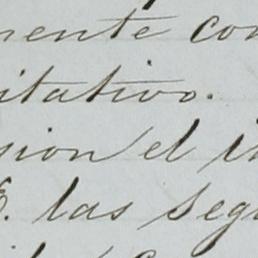 mente con
itativo.
sion el i
E. las segu